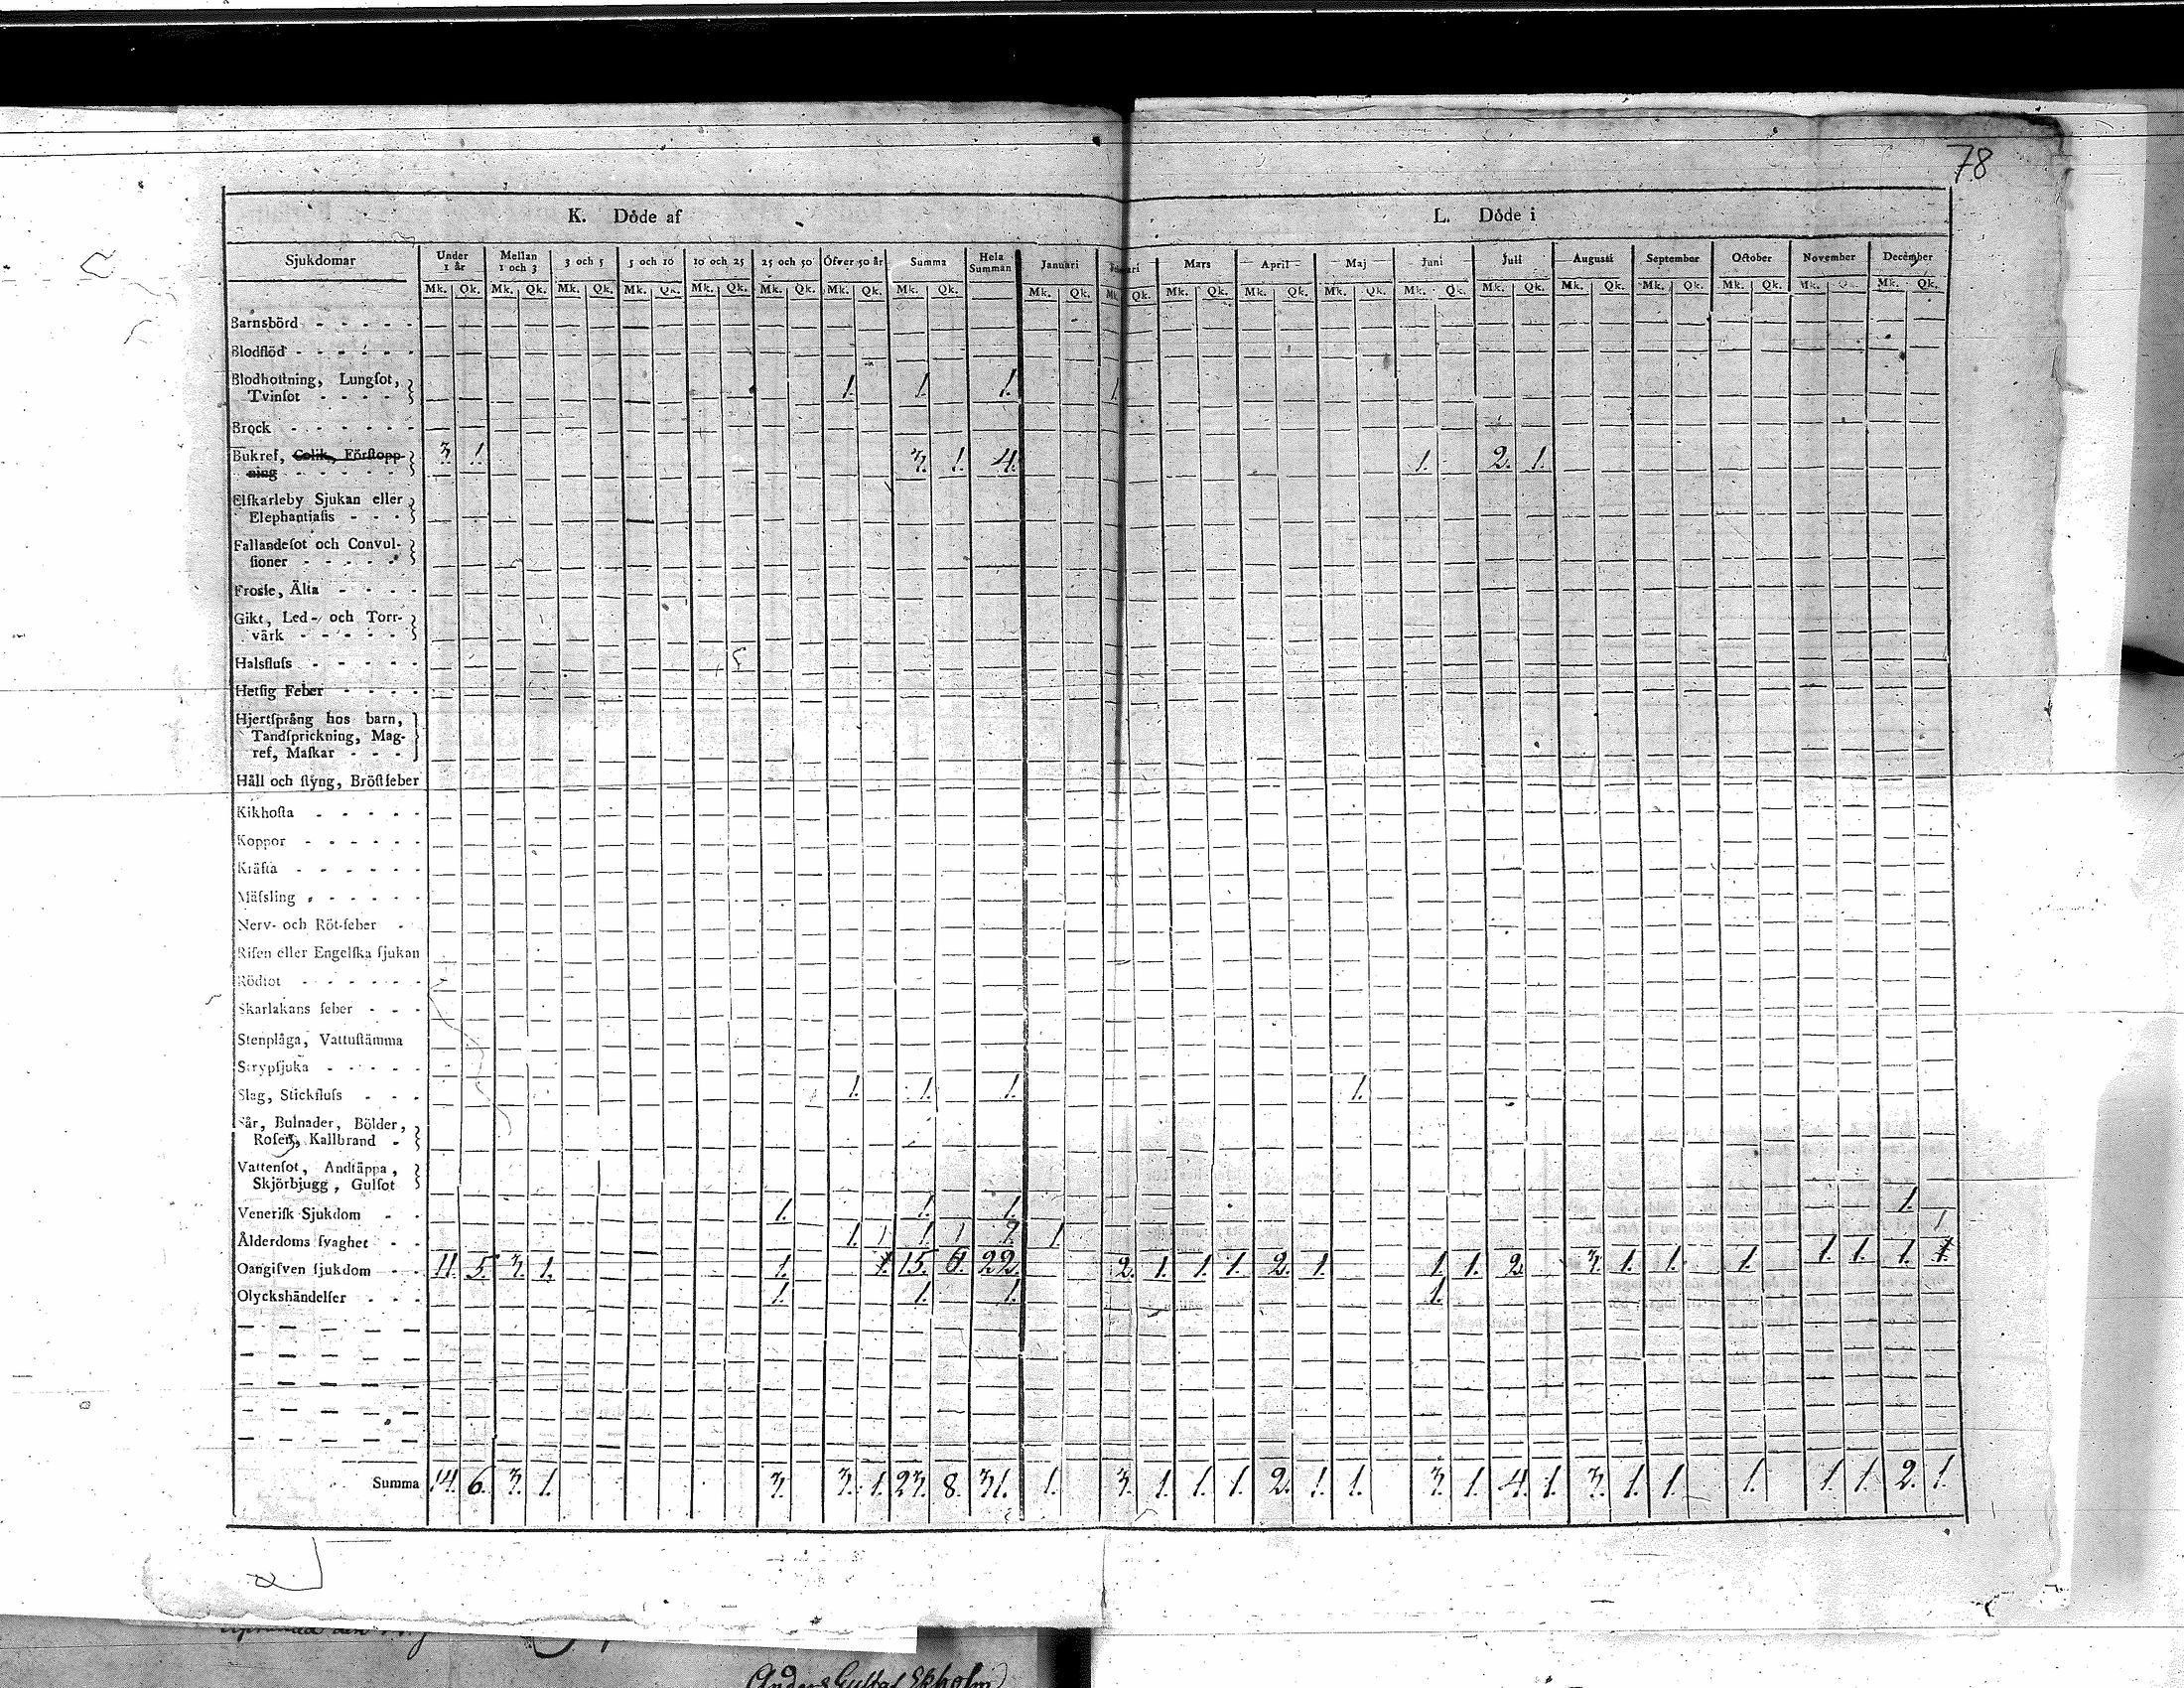 78
K. Döde af L. Döde i
Sjukdomar Under 1 år Mellan 1 och 3 3 och 5 5 och 10 10 och 25 25 och 50 Öfver 50 år Summa Hela Summan Januari Mars April Maj Juni Juli Augusti September October November December
Mk. Qk. Mk. Qk. Mk. Qk. Mk. Qk. Mk. Qk. Mk. Qk. Mk. Qk. Mk. Qk. Mk. Qk. Mk. Qk. Mk. Qk. Mk. Qk. Mk. Qk. Mk. Qk. Mk. Qk. Mk. Qk. Mk. Qk. Mk. Qk. Mk. Qk. Mk. Qk.
Barnsbörd
Blodflöd
Blodhostning, Lungsot,
Tvinsot 1. 1. 1. 1.
Bråck
Bukref, Colik, Förstopp- 3. 1. 3. 1. 4. 1. 2. 1.
ning
Elfkarleby Sjukan eller
Elephantiasis
Fallandesot och Convul-
sioner
Frossa, Älta
Gikt, Led- och Torr-
värk
Halsfluss
Hetsig Feber
Hjertsprång hos barn,
Tandsprickning, Mag-
ref, Maskar
Håll och styng, Bröstfeber
Kikhosta
Koppor
Kräfta
Mässling
Nerv- och Röt-feber
Risen eller Engelska sjukan
Rödsot
Skarlakans feber
Stenplåga, Vattustämma
Strypsjuka
Slag, Stickfluss 1. 1. 1. 1.
Sår, Bulnader, Bölder,
Rosen, Kallbrand
Vattensot, Andtäppa,
Skjörbjugg, Gulsot
Venerisk Sjukdom 1. 1. 1. 1.
Ålderdoms svaghet 1. 1 1 1 2. 1 1
Oangifven sjukdom 11. 5. 3. 1. 1. 15. 6. 22. 2. 1. 1. 1. 2. 1. 1. 1. 2. 3. 1. 1. 1. 1. 1. 1.
Olyckshändelser 1. 1. 1. 1.
Summa 14. 6. 3. 1. 3. 3. 1. 23. 8. 31. 1. 3. 1. 1. 1. 2. 1. 1. 3. 1. 4. 1. 3. 1. 1. 1. 1. 1. 2. 1.
Anders Gustaf Ekholm